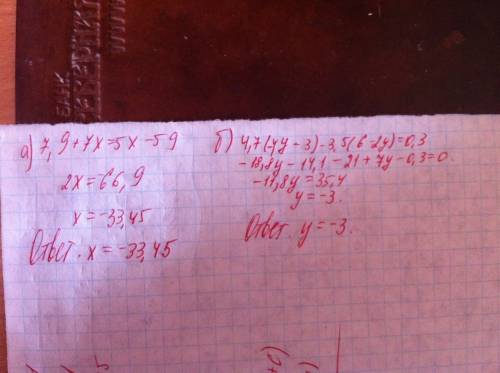 а) 7,9+7x=5x-59
2x=66,9
x=-33,45
Ответ. x=-33,45
б) 4,7(-4y-3)-3,5(6-2y)=0,3
-18,8y-14,1-21+7y-0,3=0
-11,8y=35,4
y=-3.
Ответ. y=-3.